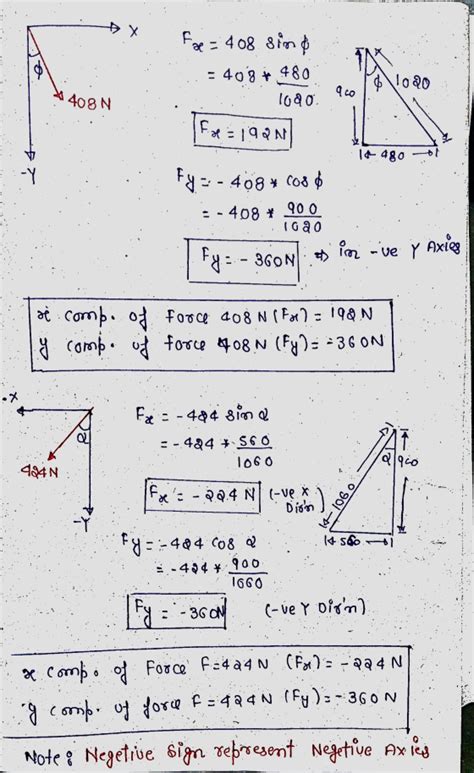 X
ϕ
408 N
-Y
Fx = 408 sin ϕ
= 408 * 480/1020
Fx = 192N
900
ϕ
1020
480
Fy = - 408 * cos ϕ
= - 408 * 900/1020
Fy = - 360N ⇒ in -ve Y Axies
x comp. of Force 408 N (Fx) = 192 N
y comp. of force 408 N (Fy) = -360N
-X
α
424N
-Y
Fx = -424 sin α
= -424 * 560/1060
Fx = -224 N (-ve X Dir'n)
1060
α
900
560
Fy = -424 cos α
= -424 * 900/1060
Fy = -360N (-ve Y Dir'n)
x comp. of Force F=424N (Fx) = -224N
y comp. of force F=424N (Fy) = -360N
Note : Negetive sign represent Negetive Axies